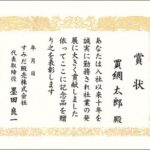 賞状
貫綱太郎殿
あなたは入社以来十年を
誠実に勤務され社業の発
展に大きく貢献しました
依ってここに記念品を贈
り之を表彰します
年 月 日
すみだ販売株式会社
代表取締役 墨田良一